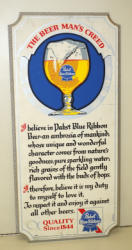 THE BEER MAN'S CREED
Pabst
Blue Ribbon
I believe in Pabst Blue Ribbon
Beer-an ambrosia of mankind,
whose unique and wonderful
character comes from nature's
goodness; pure, sparkling water;
rich grains of the field gently
flavored with the buds of hops.
I, therefore, believe it is my duty
to myself to love it.
To respect it and enjoy it against
all other beers.
QUALITY
Since 1844
Pabst
Blue Ribbon